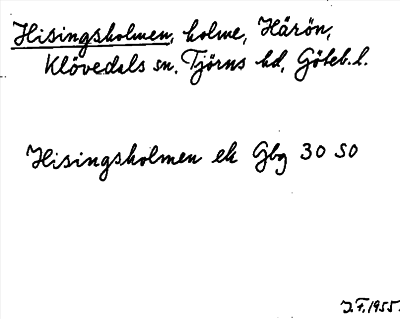 Hisingsholmen, holme, Härön,
Klövedals sn. Tjörns hd, Göteb. l.
Hisingsholmen ek Gbg 30 SO
J.F. 1955.